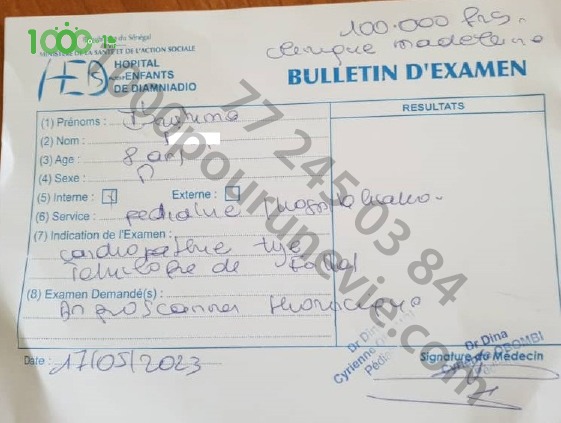 1000
République du Sénégal
MINISTERE DE LA SANTE ET DE L'ACTION SOCIALE
HED HOPITAL
ENFANTS
DE DIAMNIADIO
100.000 frs.
clinique madeleine
BULLETIN D'EXAMEN
RESULTATS
(1) Prénoms :
(2) Nom :
(3) Age : 8 ans
(4) Sexe :
(5) Interne : Externe :
(6) Service : pediatrie hospitalisation
(7) Indication de l'Examen :
cardiopathie type
Tetralogie de Fallot
(8) Examen Demandé(s) :
Angioscanner thoracique
Date : 17/05/2023
Dr Dina
Cyrienne OBOMBI
Signature du Médecin
Dr Dina
Cyrienne
77 245 03 84
1000pourunevie.com